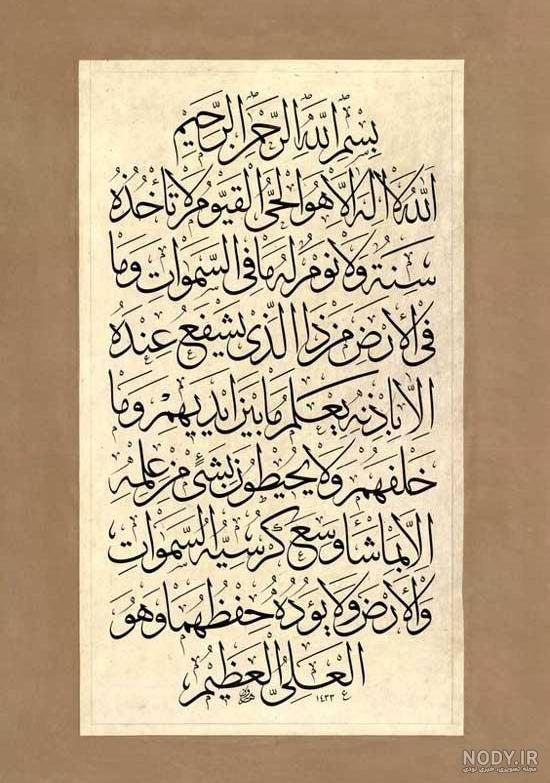 بسم الله الرحمن الرحيم
الله لا اله الا هو الحي القيوم لا تأخذه
سنة ولا نوم له ما في السموات وما
في الأرض من ذا الذي يشفع عنده
الا باذنه يعلم ما بين ايديهم وما
خلفهم ولا يحيطون بشئ من علمه
الا بما شا وسع كرسيه السموات
والأرض ولا يؤده حفظهما وهو
العلي العظيم
١٤٣٣
NODY.IR
مجله تصویری، خبری نودی